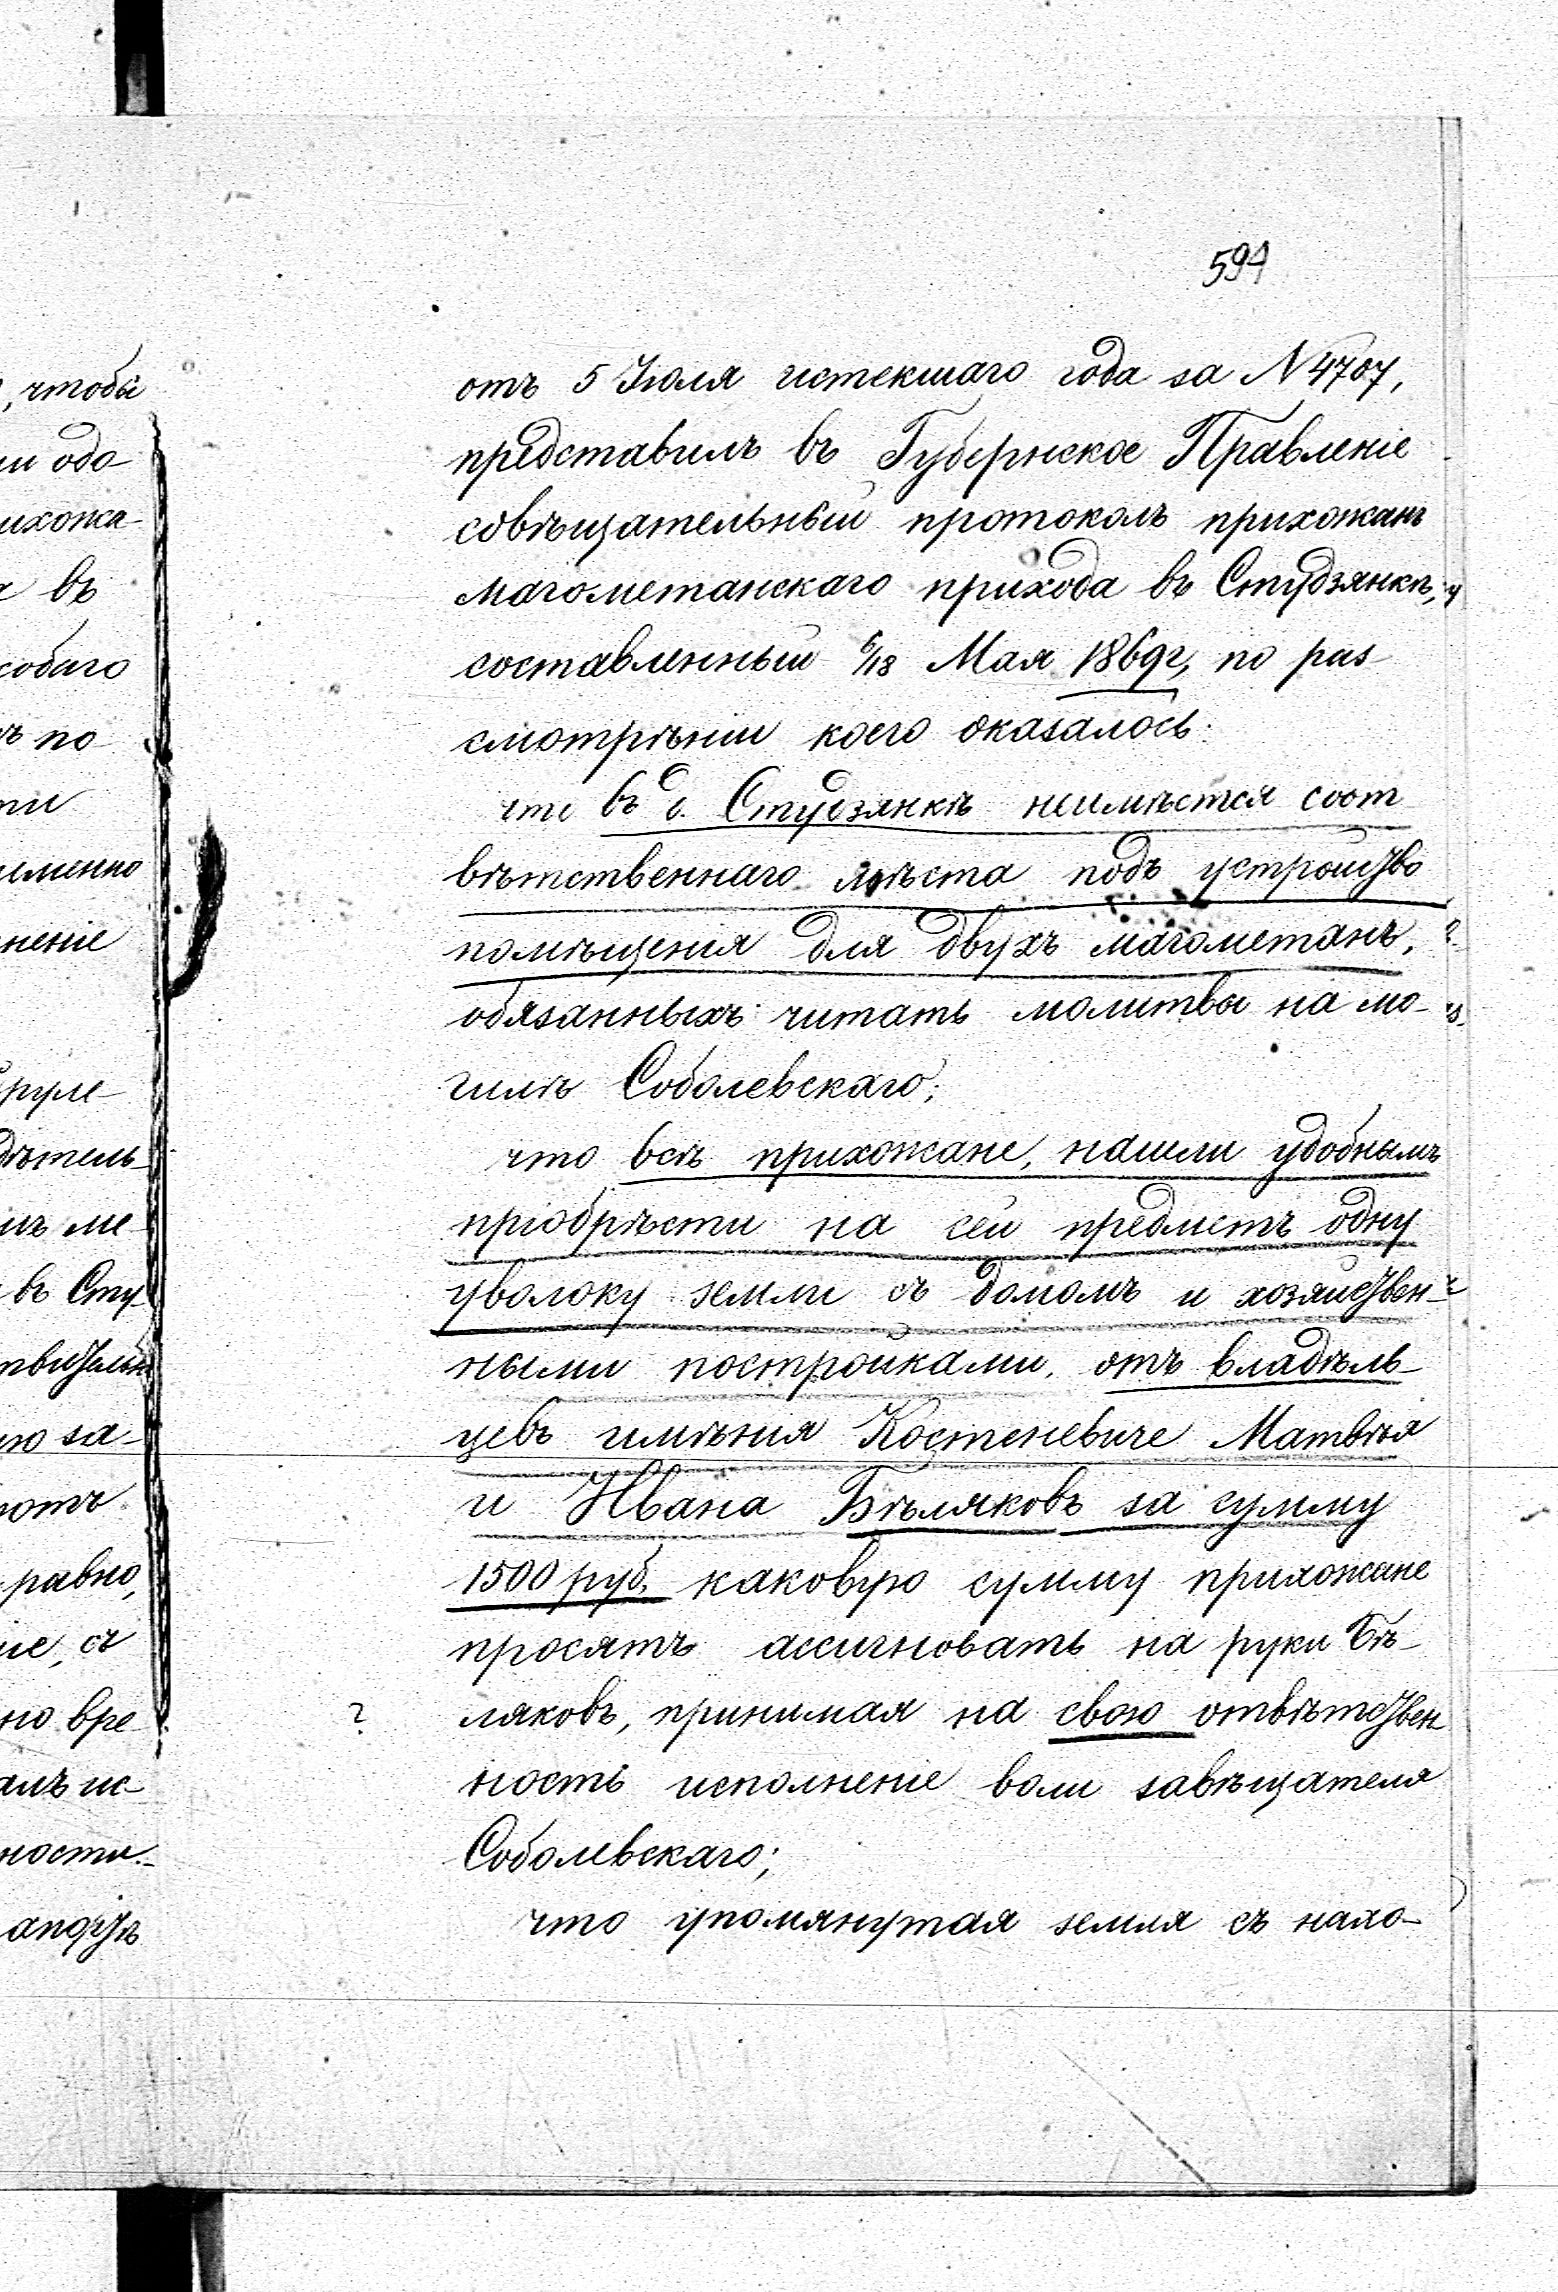 594
отъ 5 Іюля истекшаго года за № 4707,
представилъ въ Губернское Правленіе
совѣщательный протоколъ прихожанъ
магометанскаго прихода въ Студзянкѣ,
составленный 6/18 Мая 1869г, по раз
смотрѣніи коего оказалось:
что въ д. Студзянкѣ неимѣется соот
вѣтственнаго мѣста подъ устройство
помѣщенія для двухъ магометанъ,
обязанныхъ читать молитвы на мо-
гилѣ Соболевскаго;
что всѣ прихожане, нашли удобнымъ
пріобрѣсти на сей предметъ одну
уволоку земли съ домомъ и хозяйствен-
ными постройками, отъ владѣль-
цевъ имѣнія Костеневиче Матвѣя
и Ивана Бѣляковъ за сумму
1500 руб. каковую сумму прихожане
просятъ ассигновать на руки Бѣ-
? ляковъ, принимая на свою отвѣтствен
ность исполненіе воли завѣщателя
Соболевскаго;
что упомянутая земля съ нахо-
, чтобы
одо-
ихожа-
въ
собаго
ъ по
ти
именно
неніе
руле-
дѣтель-
мъ ме-
въ Сту-
ую за-
ротъ
равно,
іе, съ
но вре-
алъ ис-
ности.